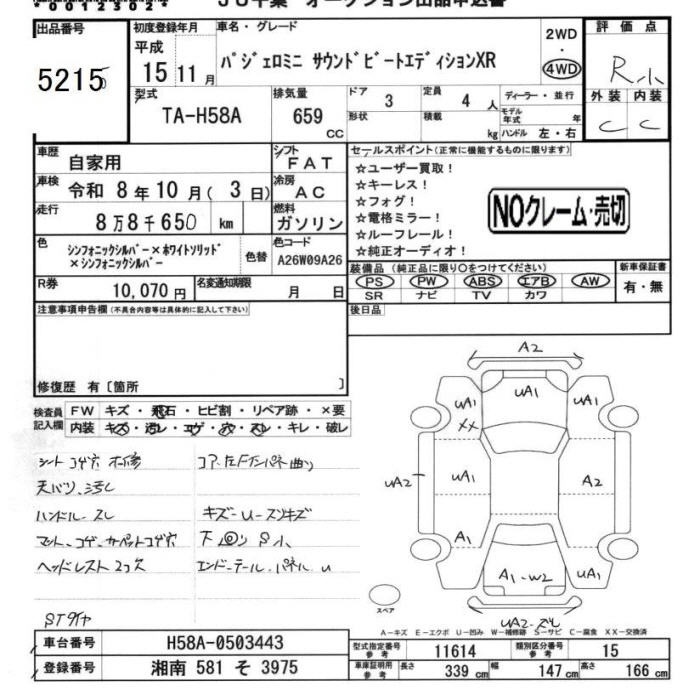 000123024
JU千葉 オークション出品申込書
出品番号
5215
初度登録年月
平成
15 11 月
車名・グレード
パジェロミニ サウンドビートエディションXR
2WD
・
4WD
評価点
R小
外装 内装
C C
型式
TA-H58A
排気量
659
CC
ドア
3
定員
4 人
形状
積載
kg
ディーラー・並行
モデル年式 年
ハンドル 左・右
車歴
自家用
シフト
FAT
車検
令和 8 年 10 月( 3 日)
冷房
AC
走行
8万8千650 km
燃料
ガソリン
色
シンフォニックシルバー×ホワイトソリッド
×シンフォニックシルバー
色替
色コード
A26W09A26
R券
10,070 円
名変通知期限
月 日
セールスポイント(正常に機能するものに限ります)
☆ユーザー買取!
☆キーレス!
☆フォグ!
☆電格ミラー!
☆ルーフレール!
☆純正オーディオ!
NOクレーム・売切
装備品(純正品に限り○をつけてください)
PS PW ABS エアB AW
SR ナビ TV カワ
新車保証書
有・無
注意事項申告欄(不具合内容等は具体的に記入して下さい)
後日品
修復歴 有〔箇所 〕
検査員
記入欄
FW キズ・飛石・ヒビ割・リペア跡・×要
内装 キズ・汚レ・エゲ・穴・スレ・キレ・破レ
シートコゲ穴
天バリ、汚し
ハンドル スレ
ヘッドレスト 2コ欠
STタイヤ
キズ-U-スリキズ
下回りS小
エンド-テール-パネル u
A2
uA1
uA1
uA1
XX
uA2
uA1
A2
A1
A1-W2
uA1
スペア
A-キズ E-エクボ U-凹み W-補修跡 S-サビ C-腐食 XX-交換済
車台番号
H58A-0503443
登録番号
湘南 581 そ 3975
型式指定番号
参考
11614
類別区分番号
参考
15
車庫証明用
参考
長さ
339 cm
幅
147 cm
高さ
166 cm